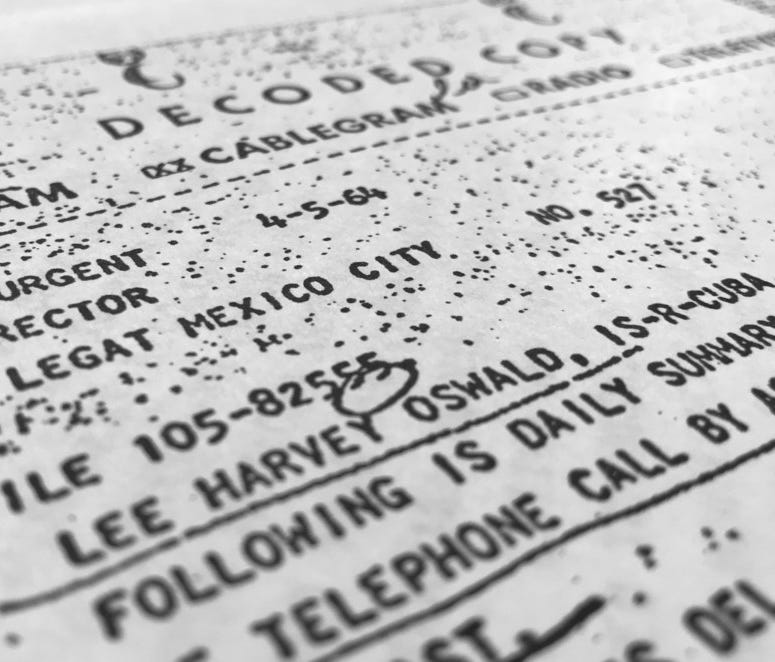 DECODED COPY
AM ☒ CABLEGRAM □ RADIO □
URGENT 4-5-64 NO. 527
RECTOR
LEGAT MEXICO CITY
ILE 105-82555
LEE HARVEY OSWALD, IS-R-CUBA
FOLLOWING IS DAILY SUMMARY
TELEPHONE CALL BY
DEL